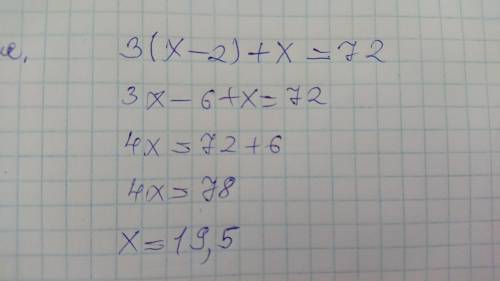 3(x-2)+x=72
3x-6+x=72
4x=72+6
4x=78
x=19,5